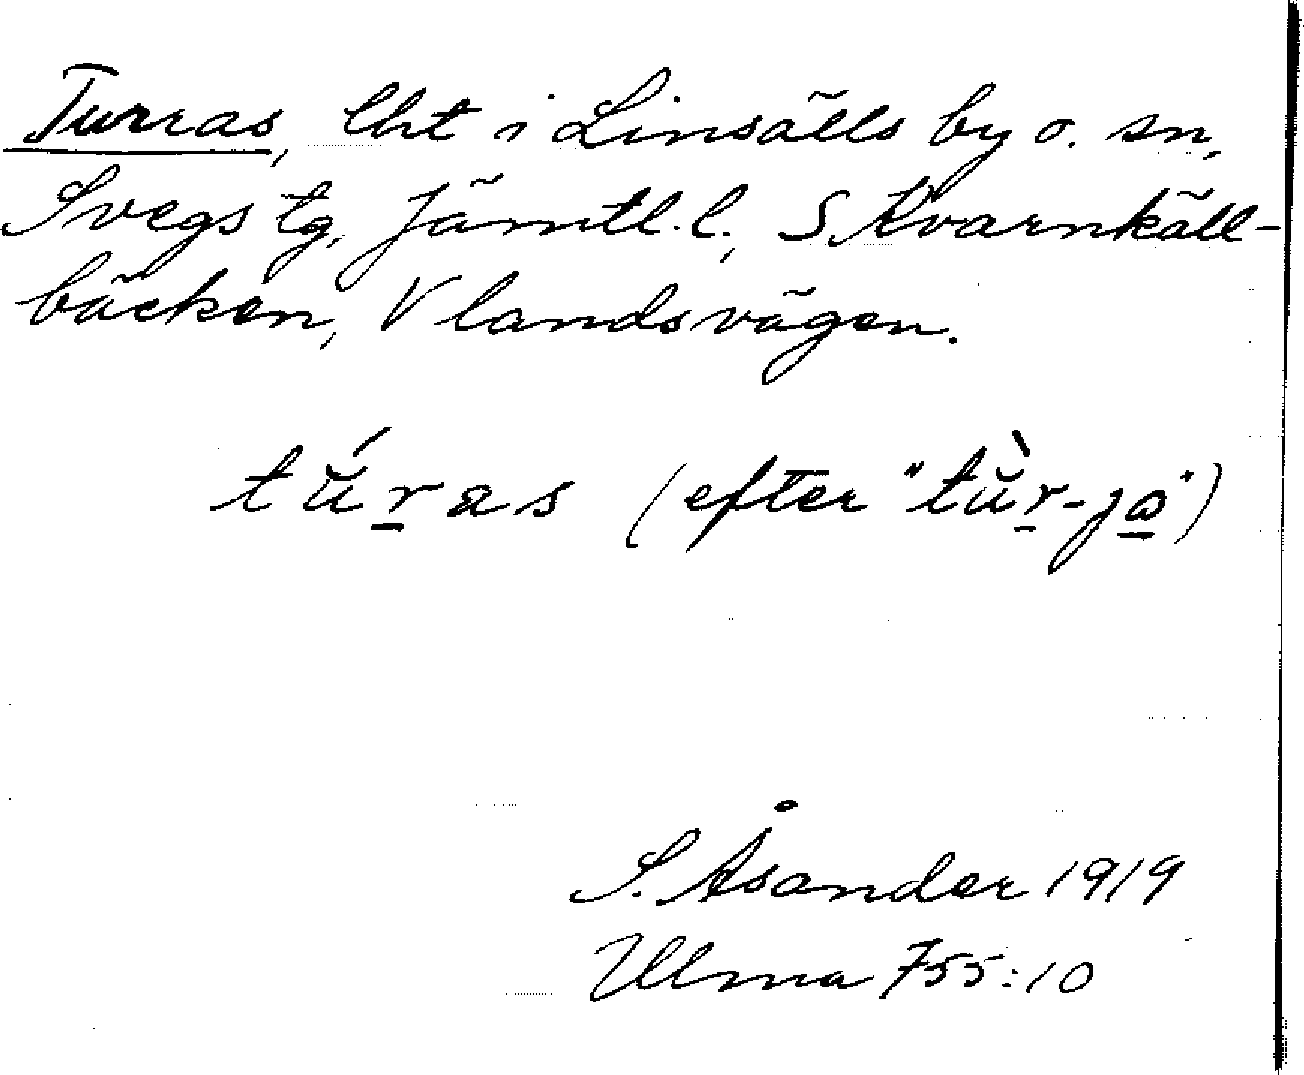 Turras, lht i Linsälls by o. sn,
Svegs tg, Jämtl. l., S Kvarnkäll-
bäcken, V landsvägen.
tŭ́ras (efter "tŭ̀r-ja")
S. Åsander 1919
Ulma 755:10